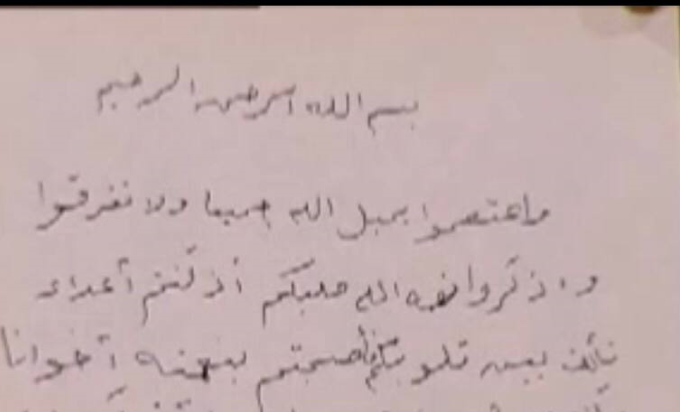 بسم الله الرحمن الرحيم
واعتصموا بحبل الله جميعا ولا تفرقوا
واذكروا نعمة الله عليكم أذ كنتم أعداء
فألف بين قلوبكم فأصبحتم بنعمته أخوانا